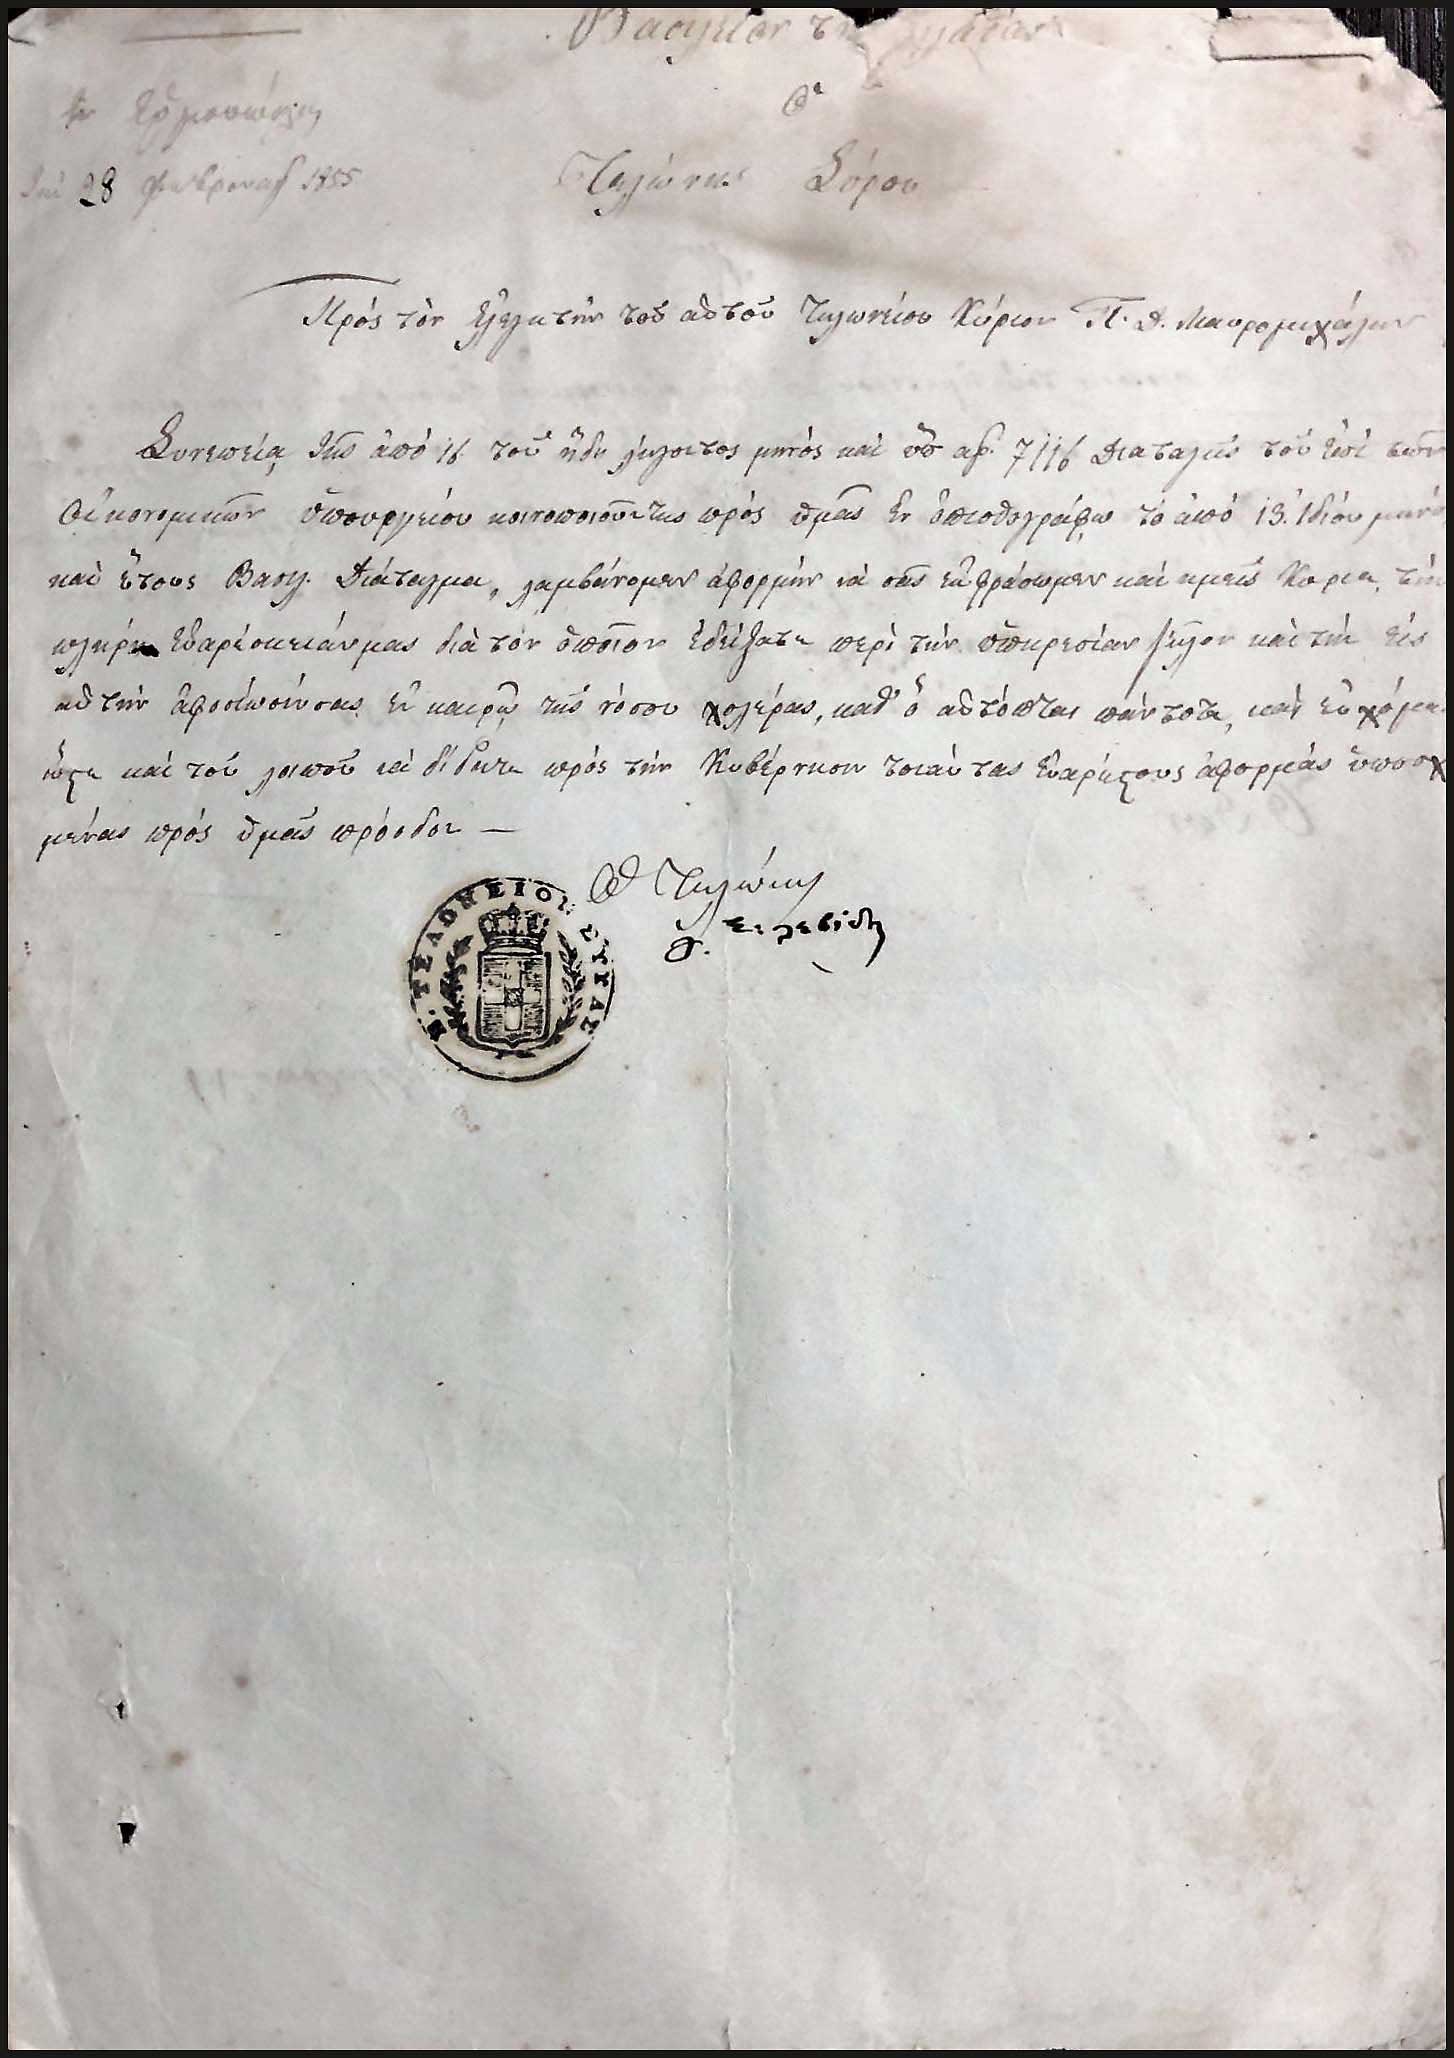 Βασίλειον τῆς Ἑλλάδος
Ἐν Ἑρμουπόλει
τῇ 28 Φεβρουαρ 1855
Ὁ
Τελώνης Σύρου
Πρὸς τὸν Ἐλεγκτὴν τοῦ αὐτοῦ Τελωνείου Κύριον Π. Δ. Μαυρομιχάλην
Συνεπείᾳ τῆς ἀπὸ 16 τοῦ ἤδη λήγοντος μηνὸς καὶ ὑπ ἀρ. 7116 Διαταγῆς τοῦ ἐπὶ τῶν
Οἰκονομικῶν Ὑπουργείου κοινοποιούσης πρὸς ὑμᾶς ἐν ὀπισθογράφῳ τὸ ἀπὸ 13. ἰδίου μηνὸ
καὶ ἔτους Βασιλ. Διάταγμα, λαμβάνομεν ἀφορμὴν νὰ σᾶς ἐκφράσωμεν καὶ ἡμεῖς Κύριε, τὴν
πλήρη εὐαρέσκειάν μας διὰ τὸν ὁποῖον ἐδείξατε περὶ τὴν ὑπηρεσίαν ζῆλον καὶ τὴν εἰς
αὐτὴν ἀφοσίωσίν σας ἐν καιρῷ τῆς νόσου χολέρας, καθ' ὃ αὐτόπται πάντοτε, καὶ εὐχόμε
ὥστε καὶ τοῦ λοιποῦ νὰ δίδετε πρὸς τὴν Κυβέρνησιν τοιαύτας εὐαρέστους ἀφορμὰς ὑποσχ
μένας πρὸς ὑμᾶς πρόοδον —
Ὁ Τελώνης
Β. ΤΕΛΩΝΕΙΟΝ ΣΥΡΑΣ